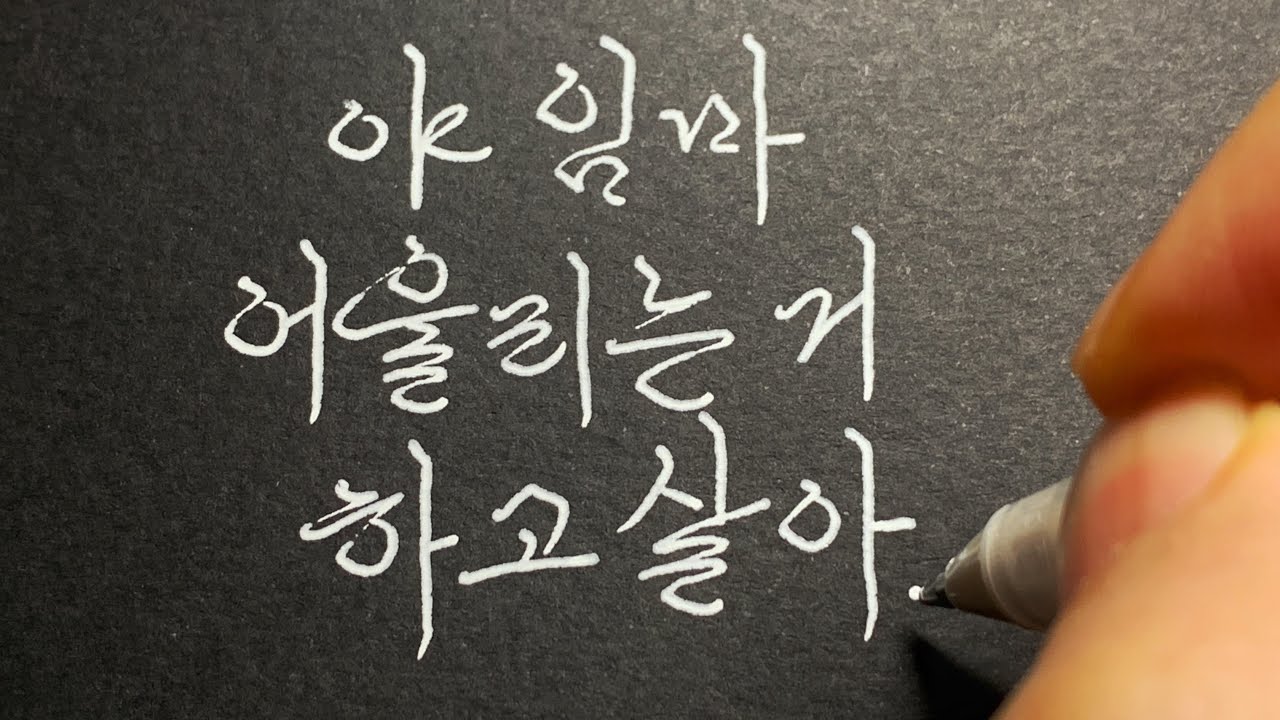 야 임마
어울리는 거
하고 살아.